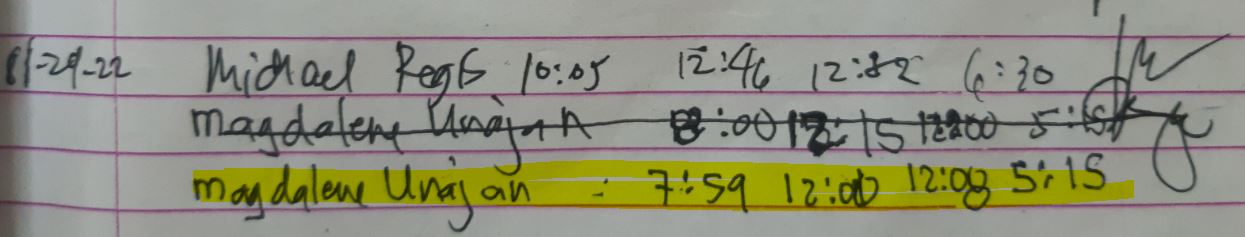 11-29-22 Michael Regis 10:05 12:46 12:52 6:30
Magdalene Unajan 8:00 12:15 1:00 5:15
Magdalene Unajan : 7:59 12:00 12:08 5:15